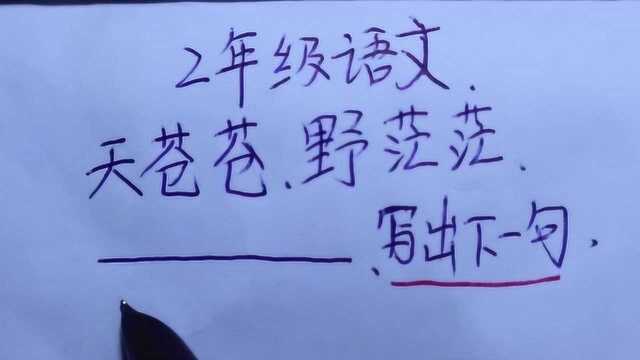 2年级语文.
天苍苍、野茫茫、
、写出下一句.